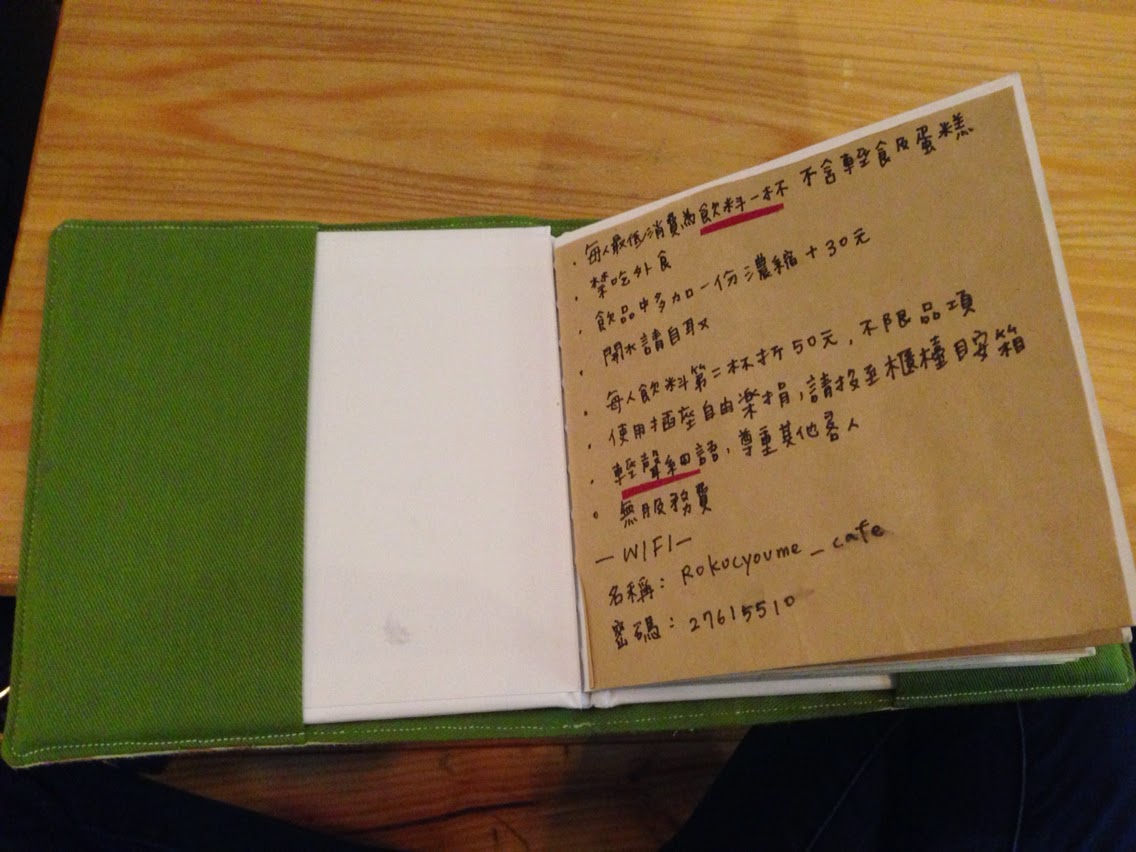 ・每人最低消費為飲料一杯 不含輕食及蛋糕
・禁吃外食
・飲品中多加一份濃縮+30元
・開水請自取
・每人飲料第二杯折50元,不限品項
・使用插座自由樂捐,請投至櫃檯目安箱
・輕聲細語,尊重其他客人
・無服務費
—WIFI—
名稱:Rokucyoume_cafe
密碼:27615510